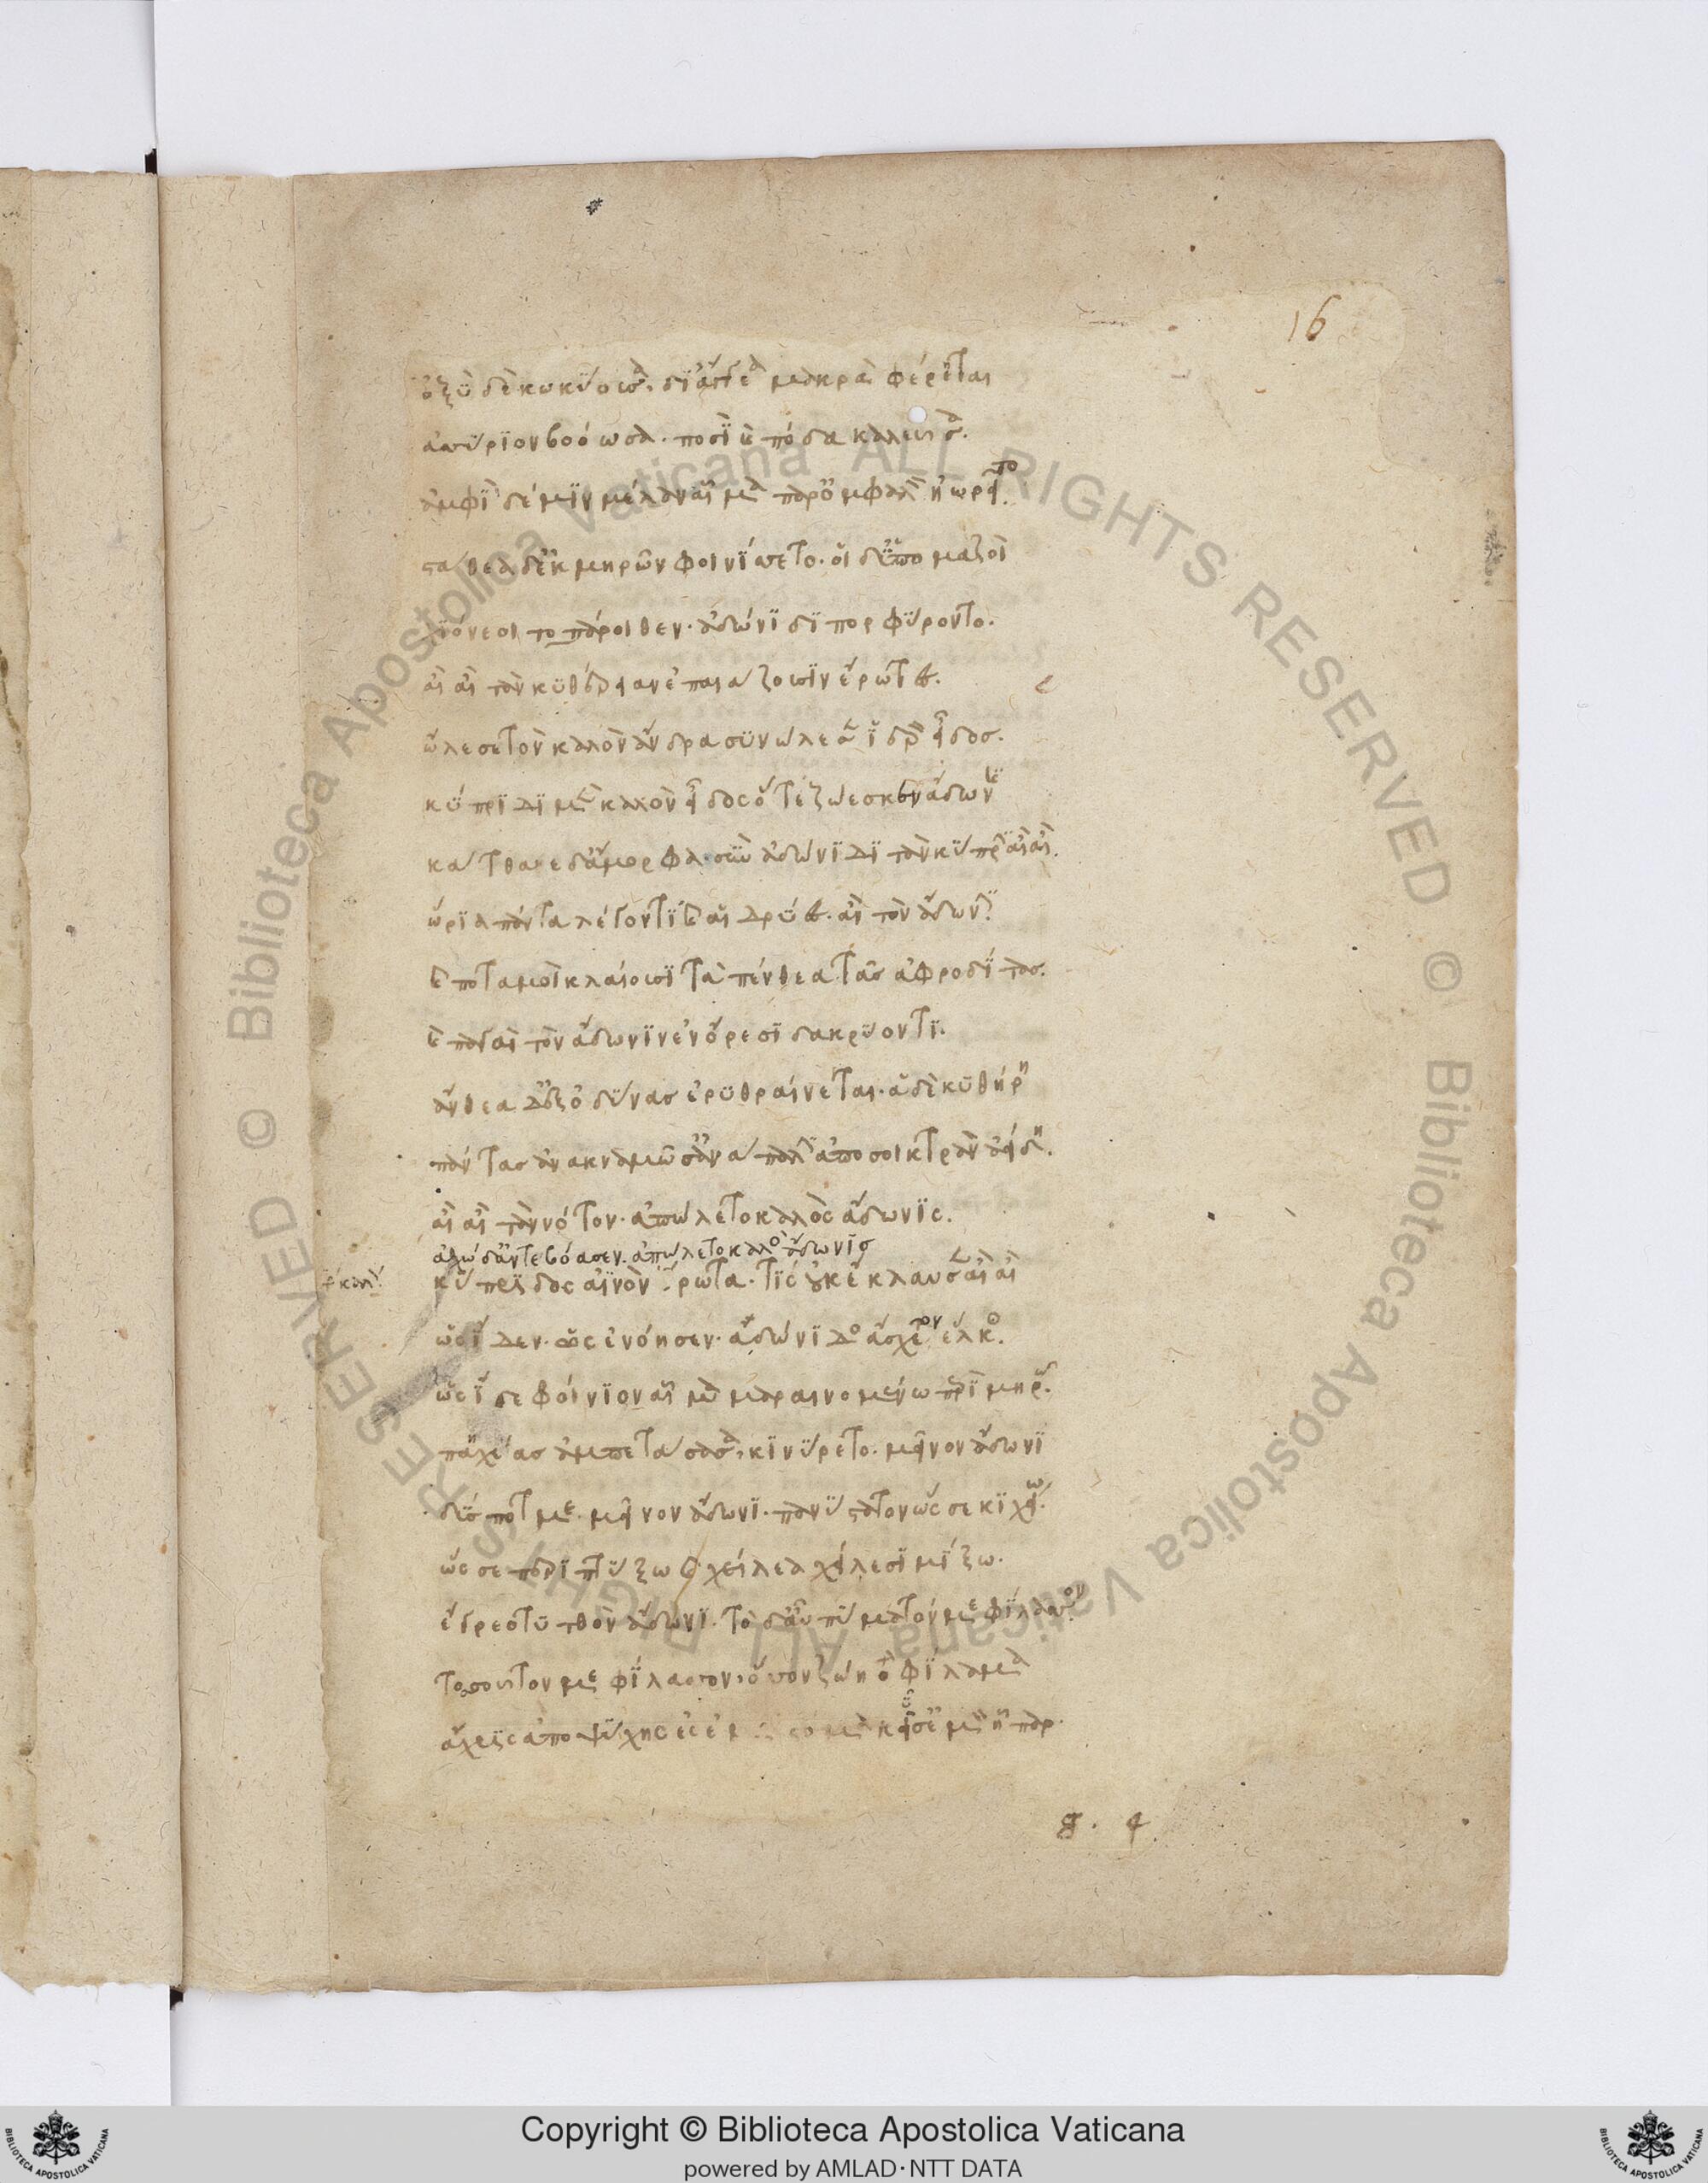 16
ὀξὺ δὲ κωκύοισα. δι' ἄγγεα μακρὰ φέρεται
ἀσύριον βοόωσα. πόσιν καὶ πόδα καλεῦσα.
ἀμφὶ δέ μιν μέλαν αἷμα παρ' ὀμφαλὸν ᾐωρεῖτο.
στάθεα δ' ἐκ μηρῶν φοινίσσετο. οἱ δ' ὑπὸ μαζοὶ
χιόνεοι τὸ πάροιθεν. ἀδώνιδι πορφύροντο.
αἲ αἲ τὰν κυθέρειαν ἐπαιάζουσιν ἔρωτες.
ὤλεσε τὸν καλὸν ἄνδρα σὺν ὤλεσεν ἱερὸν εἶδος.
κύπριδι μὲν καλὸν εἶδος ὅτε ζώεσκεν ἄδωνις
κάτθανε δ' ἁ μορφὰ. σὺν ἀδώνιδι τὰν κύπριν αἲ αἲ.
ὤρια πάντα λέγοντι καὶ αἱ δρύες. αἲ τὸν ἄδωνιν
καὶ ποταμοὶ κλαίουσι τὰ πένθεα τᾶς ἀφροδίτας.
καὶ παγαὶ τὸν ἄδωνιν ἐν ὄρεσι δακρύοντι.
ἄνθεα δ' ἐξ ὀδύνας ἐρυθραίνεται. ἁ δὲ κυθήρη
πάντας ἀνὰ κναμῶς ἀνὰ πᾶν ἀποσ οἰκτρὰν ἀείδη.
αἲ αἲ τὰν νότον. ἀπώλετο καλὸς ἄδωνις.
ἀχὼ δ' ἀντεβόασεν. ἀπώλετο καλὸς ἄδωνις
κύπριδος αἰνὸν ἔρωτα. τίς οὐκ ἔκλαυσεν αἲ αἲ
ὡς ἴδεν. ὡς ἐνόησεν. ἀδώνιδος ἄσχετον ἕλκος.
ὡς ἴδε φοίνιον αἷμα μαραινομένω περὶ μηρῷ.
πάχεας ἀμπετάσασα, κινύρετο. μεῖνον ἄδωνι
δύσποτμε. μεῖνον ἄδωνι. πανύστατον ὥς σε κιχείω.
ὥς σε περιπτύξω καὶ χείλεα χείλεσι μίξω.
ἔγρεο τυτθὸν ἄδωνι. τὸ δ' αὖ πύματόν με φίλασον
τοσοῦτον με φίλασον, ὅσον ζώη τὸ φίλαμα
ἄχρις ἀποψύχης ἐς ἐμὸν στόμα κεἰς ἐμὸν ἧπαρ.
g. 4.
Copyright © Biblioteca Apostolica Vaticana
powered by AMLAD·NTT DATA
© Biblioteca Apostolica Vaticana ALL RIGHTS RESERVED
© Biblioteca Apostolica Vaticana ALL RIGHTS RESERVED